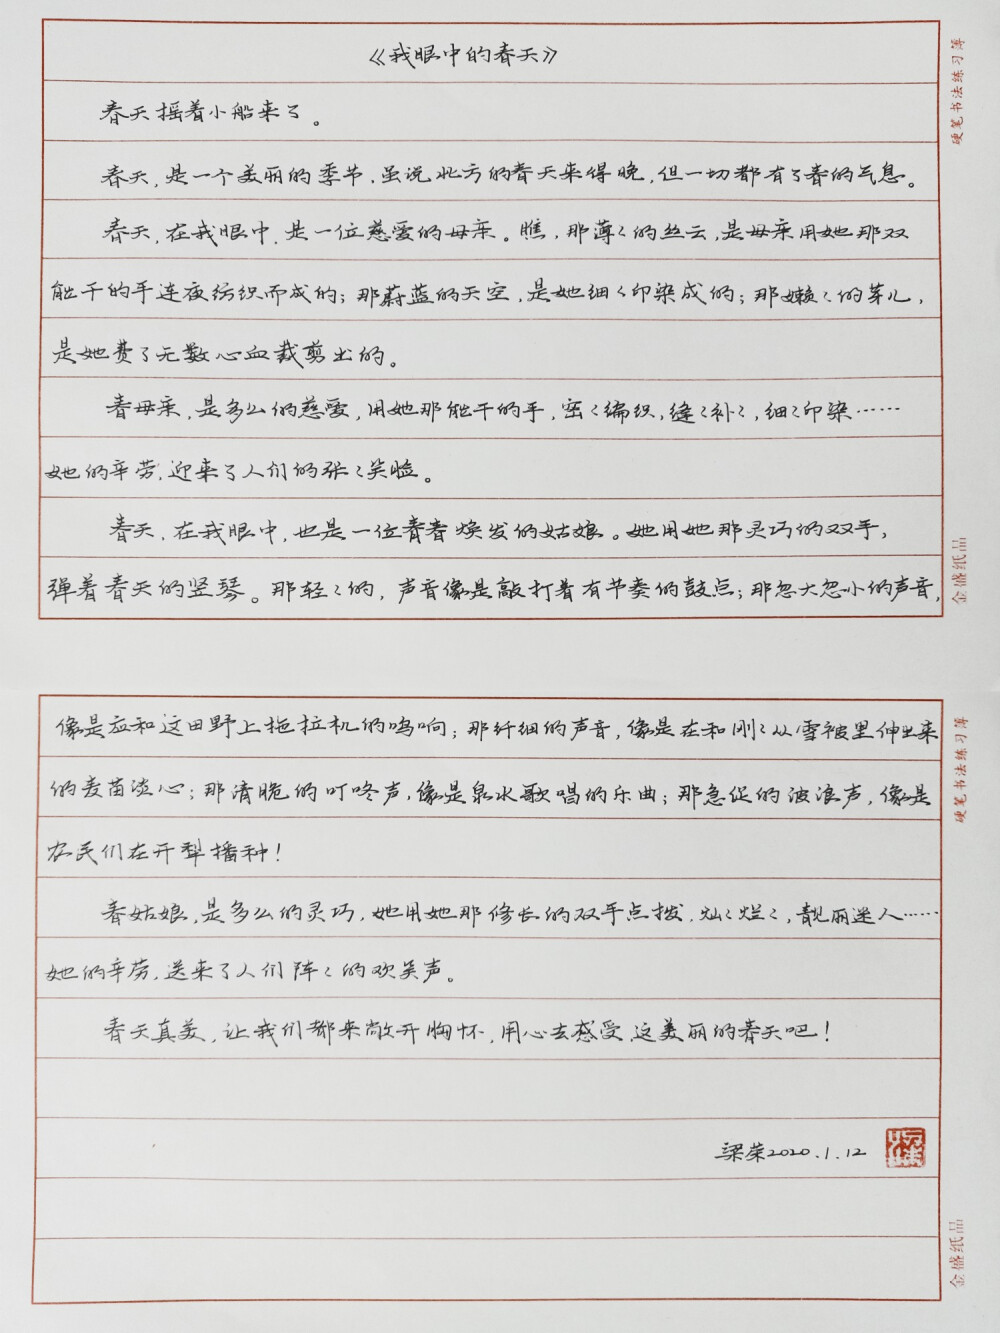 《我眼中的春天》
春天摇着小船来了。
春天,是一个美丽的季节,虽说北方的春天来得晚,但一切都有了春的气息。
春天,在我眼中,是一位慈爱的母亲。瞧,那薄〻的丝云,是母亲用她那双
能干的手连夜纺织而成的;那蔚蓝的天空,是她细〻印染成的;那嫩〻的芽儿,
是她费了无数心血裁剪出的。
春母亲,是多么的慈爱,用她那能干的手,密〻编织,缝〻补〻,细〻印染……
她的辛劳,迎来了人们的张〻笑脸。
春天,在我眼中,也是一位青春焕发的姑娘。她用她那灵巧的双手,
弹着春天的竖琴。那轻〻的,声音像是敲打着有节奏的鼓点;那忽大忽小的声音,
像是应和这田野上拖拉机的鸣响;那纤细的声音,像是在和刚〻从雪被里伸出来
的麦苗谈心;那清脆的叮咚声,像是泉水歌唱的乐曲;那急促的波浪声,像是
农民们在开犁播种!
春姑娘,是多么的灵巧,她用她那修长的双手点拨,灿〻烂〻,靓丽迷人……
她的辛劳,送来了人们阵〻的欢笑声。
春天真美,让我们都来敞开胸怀,用心去感受这美丽的春天吧!
梁荣2020.1.12
硬笔书法练习簿
金盛纸品
硬笔书法练习簿
金盛纸品